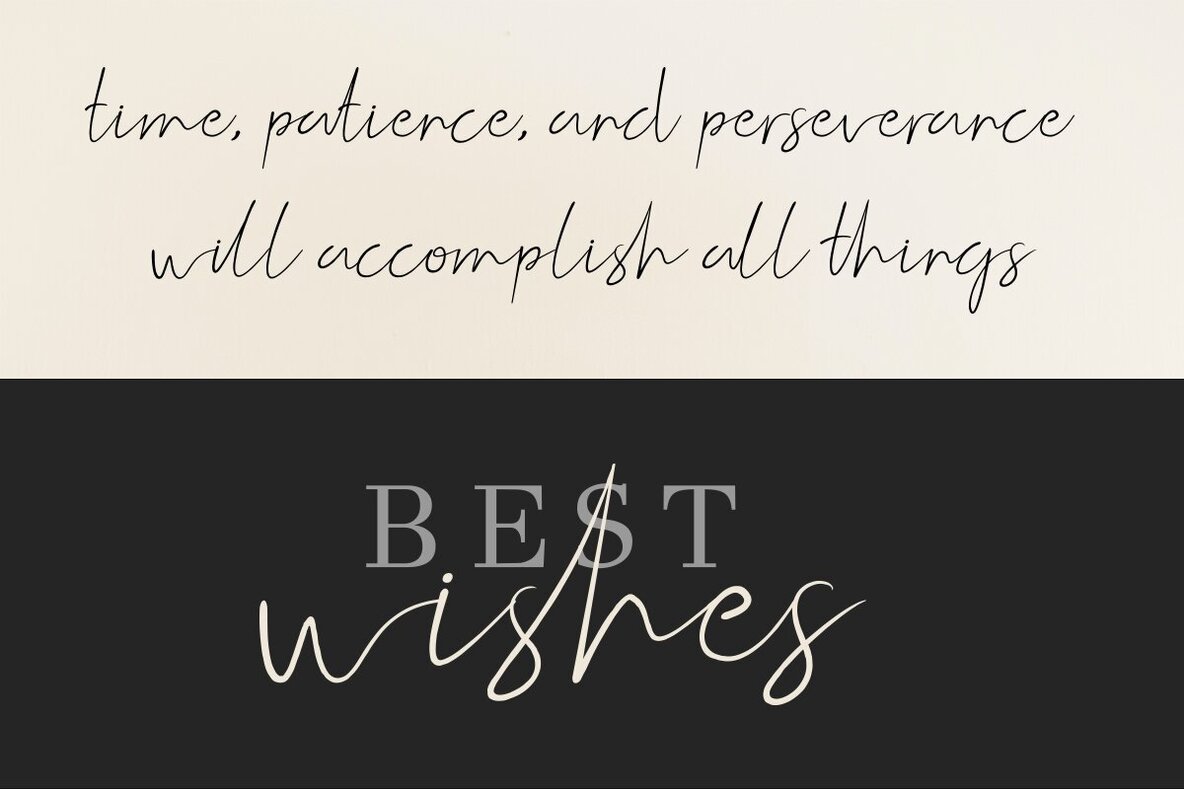 time, patience, and perseverance
will accomplish all things
BEST
wishes